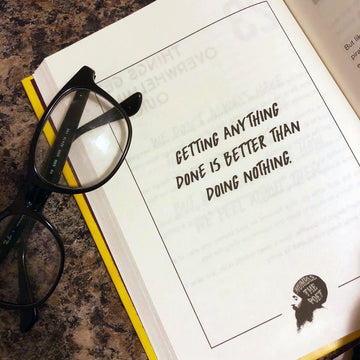 GETTING ANYTHING
DONE IS BETTER THAN
DOING NOTHING.
THE
POET
But